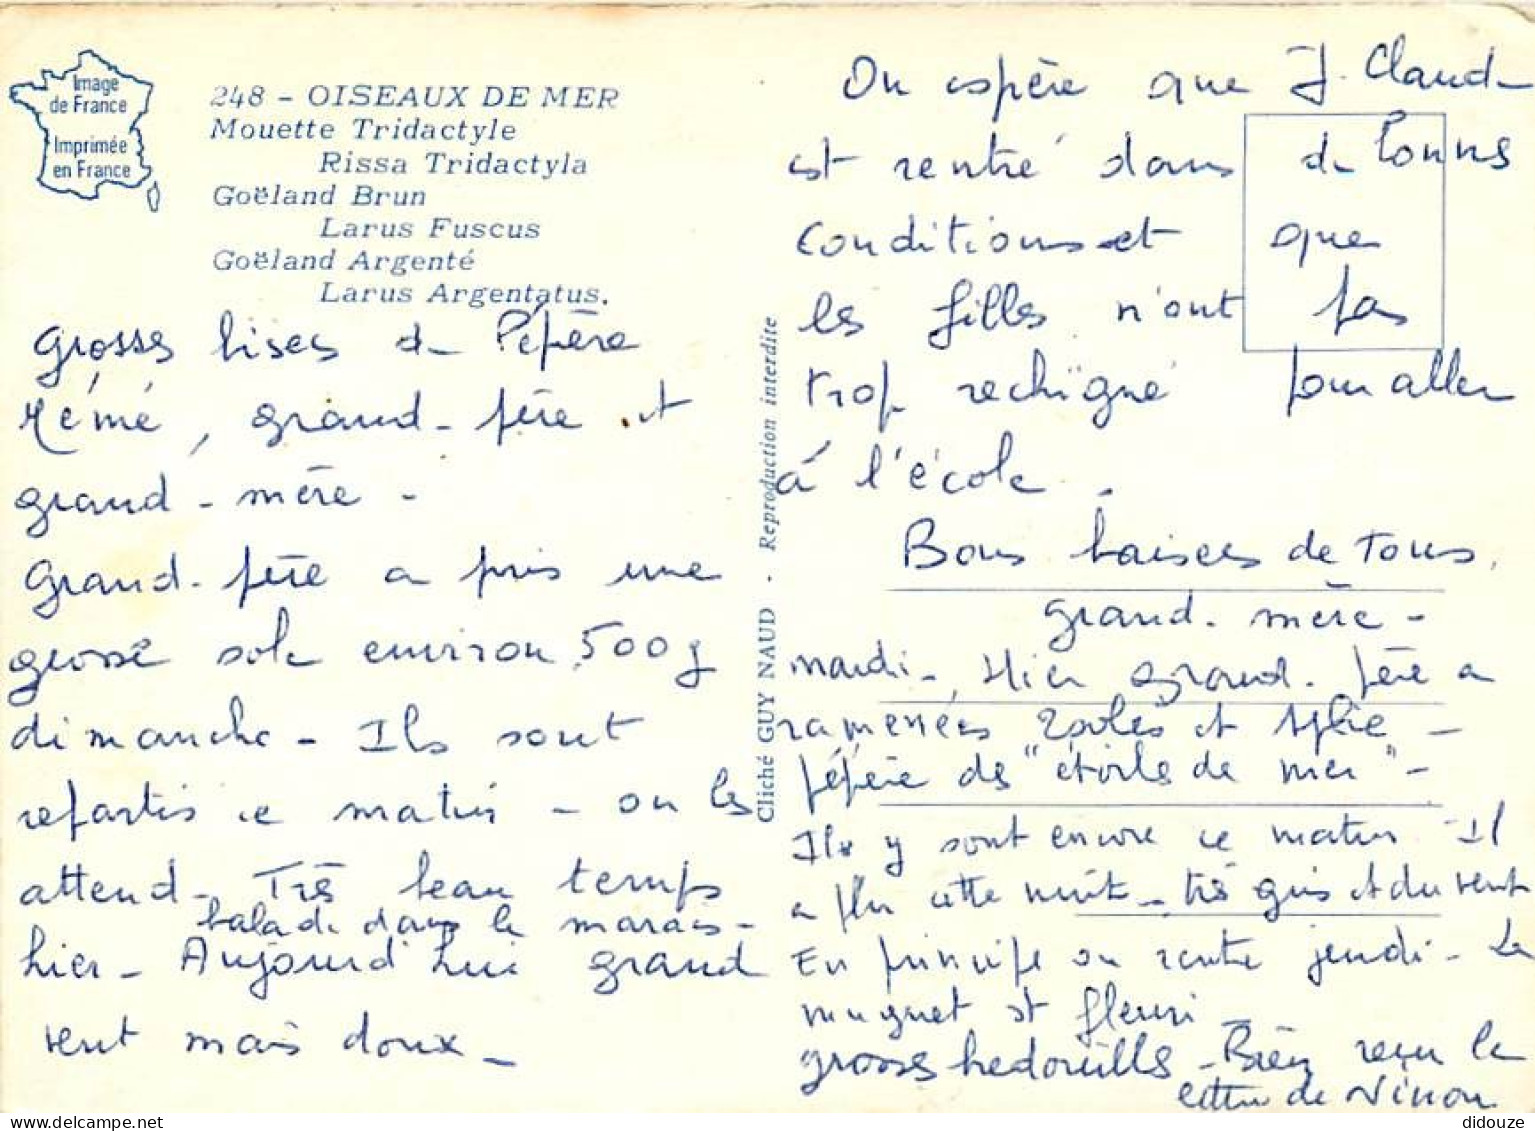 Image
de France
Imprimée
en France
248 - OISEAUX DE MER
Mouette Tridactyle
Rissa Tridactyla
Goëland Brun
Larus Fuscus
Goëland Argenté
Larus Argentatus.
grosses bises de Pépère
Mémé, grand-père et
grand-mère -
Grand-père a pris une
grosse sole environ 500g
dimanche - Ils sont
repartis ce matin - on les
attend - Très beau temps
balade dans le marais -
hier - Aujourd'hui grand
vent mais doux -
Cliché GUY NAUD . Reproduction interdite
On espère que J. Claude
est rentré dans de bonnes
conditions et que
les filles n'ont pas
trop rechigné pour aller
à l'école.
Bons baisers de Tous,
grand-mère -
mardi - Hier grand-père a
ramenées 2 soles et
pépère des "étoiles de mer" -
Ils y sont encore ce matin Il
a plu cette nuit - très gris et du vent
En principe on rentre jeudi - Le
muguet est fleuri -
grosses - Bien reçu la
lettre de Ninon
didouze